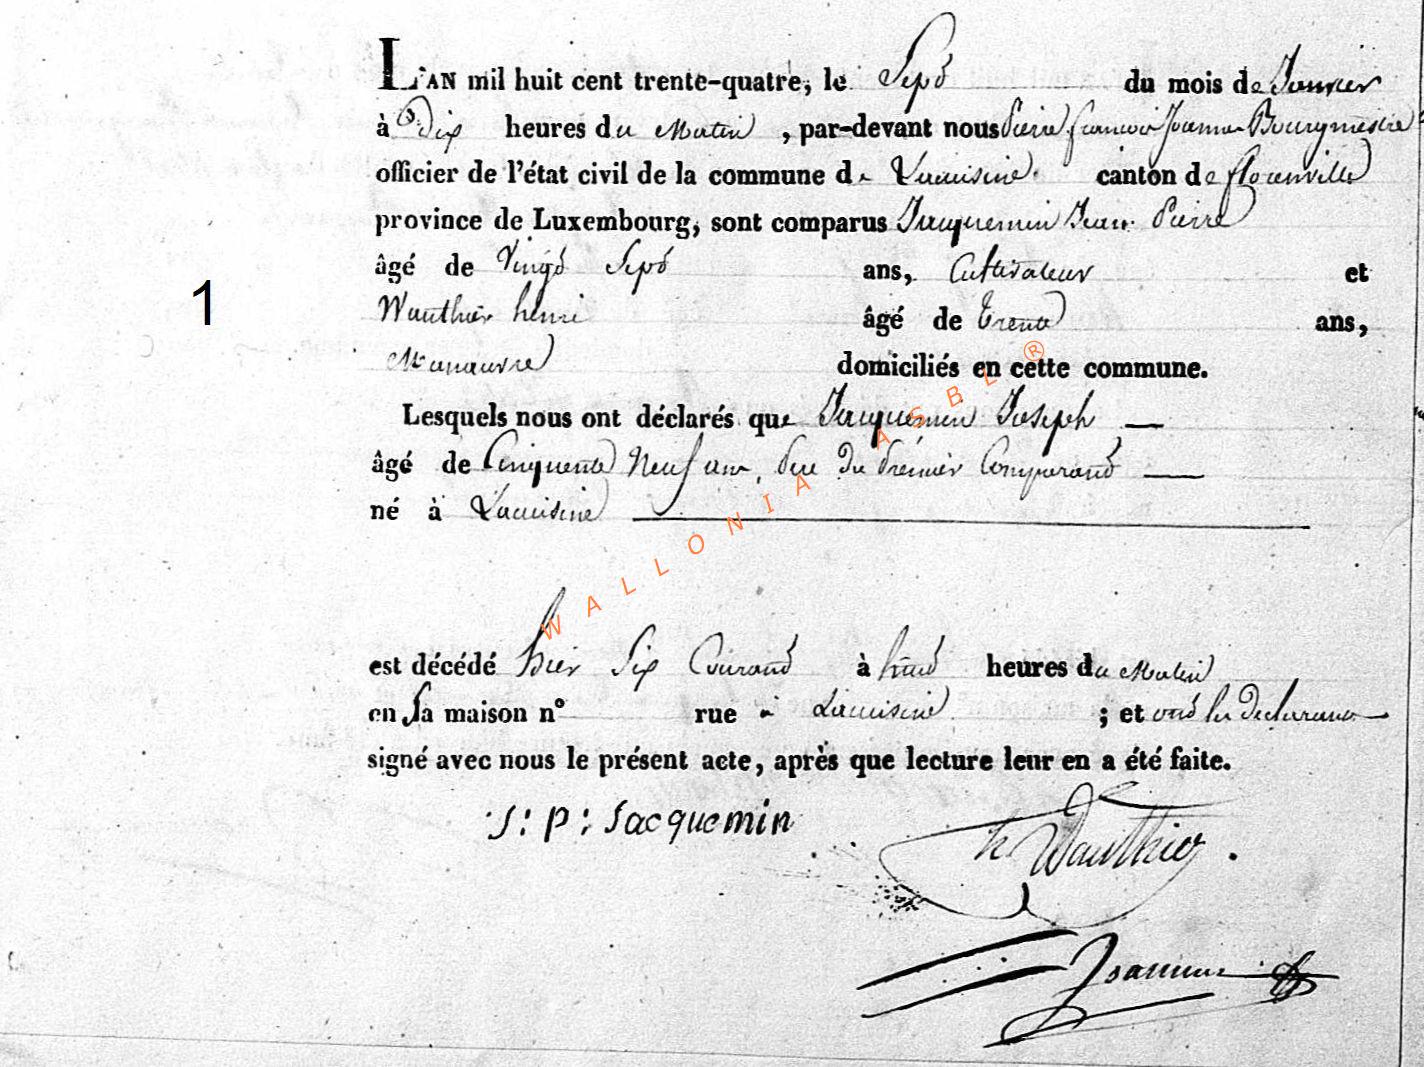 L'AN mil huit cent trente-quatre, le Sept du mois de Janvier
à Dix heures du Matin, par-devant nous Pierre françois Joannes Bourgmestre
officier de l'état civil de la commune de Lacuisine canton de florenville
province de Luxembourg, sont comparus Jacquemin Jean Pierre
âgé de Vingt Sept ans, Cultivateur et
1
Wauthier henri âgé de trente ans,
Manœuvre domiciliés en cette commune.
Lesquels nous ont déclarés que Jacquemin Joseph
âgé de Cinquante Neuf ans, père du premier Comparant
né à Lacuisine
est décédé hier Six Courant à huit heures du Matin
en Sa maison n° rue à Lacuisine ; et ont les declarans
signé avec nous le présent acte, après que lecture leur en a été faite.
J: P: Jacquemin
h Wauthier.
WALLONIA ASBL ®